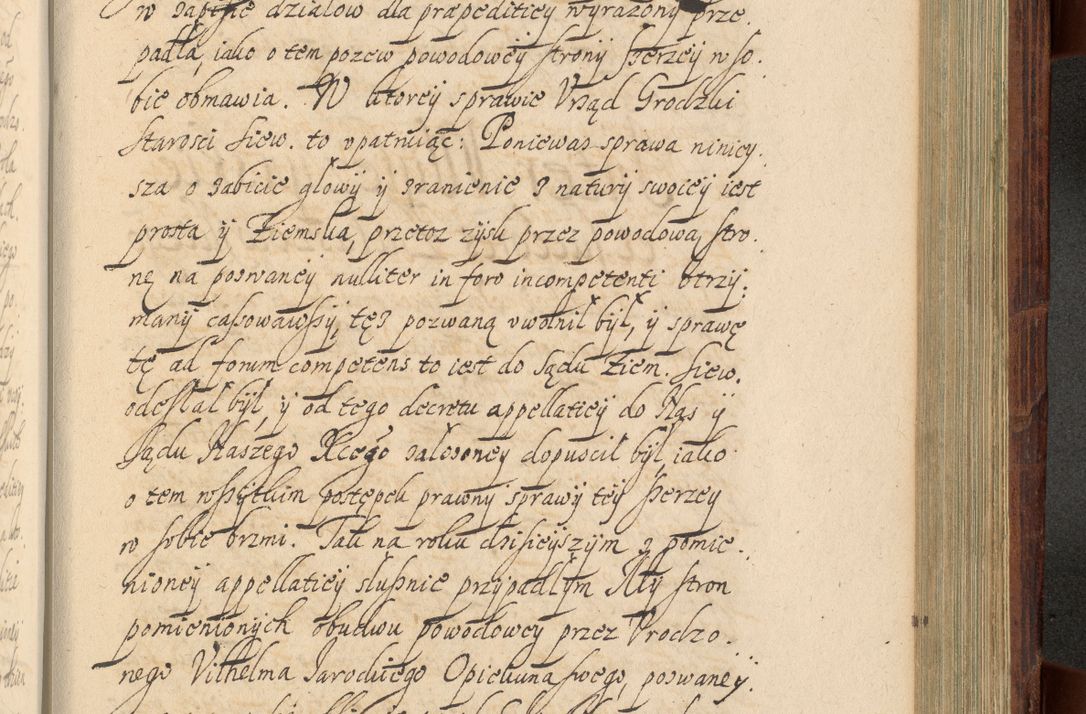 w zabicie działow dla præpeditiey wyrazony prze.
padła, iako o tem pozew powodowey strony szerzey w so.
bie obmawia. W ktorey sprawie Vrząd Grodzki
Starosci Siew. to vpatruiąc: Poniewasz sprawa niniey.
sza o zabicie głowy ÿ zranienie z natury swoieÿ iest
prosta ÿ Ziemska, przetoz zysk przez powodową stro.
nę na pozwaneÿ nulliter in foro incompetenti otrzÿ.
manÿ cassowawszÿ, tęz pozwaną vwolnił bÿł, ÿ sprawę
tę ad forum competens to iest do Sądu Ziem. Siew.
odesłał bÿł, ÿ od tego decretu appellatieÿ do Nas ÿ
Sądu Naszego Xcego założoneÿ dopuscił bÿł, iako
o tem wszÿtkim postępek prawnÿ sprawÿ teÿ szerzeÿ
w sobie brzmi. Tak na roku dzisieÿszÿm z pomie.
nioneÿ appellatieÿ słusznie przÿpadłÿm Mÿ stron
pomienionÿch obudwu powodoweÿ przez Vrodzo.
nego Vilhelma Jarockiego Opiekuna swego, pozwaneÿ.